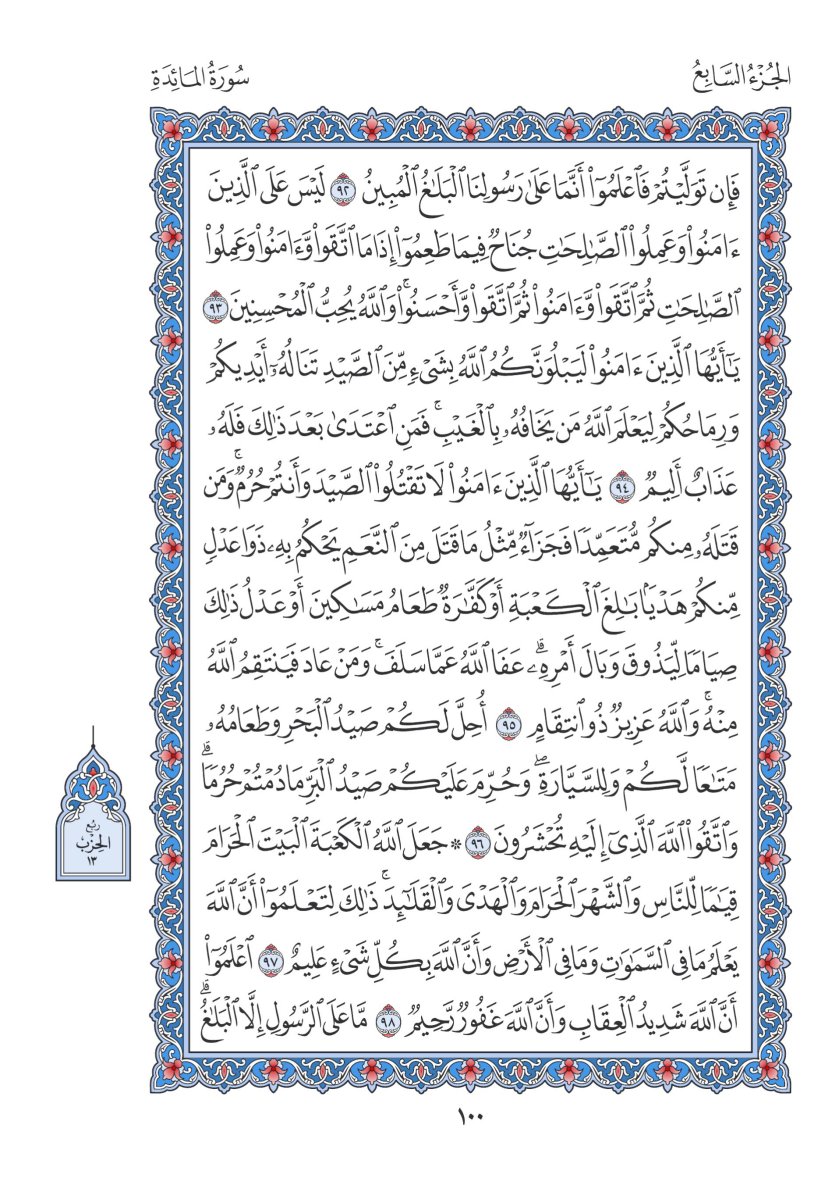 الجُزْءُ السَّابِعُ
سُورَةُ المَائِدَةِ
فَإِن تَوَلَّيْتُمْ فَٱعْلَمُوٓا۟ أَنَّمَا عَلَىٰ رَسُولِنَا ٱلْبَلَٰغُ ٱلْمُبِينُ ٩٢ لَيْسَ عَلَى ٱلَّذِينَ
ءَامَنُوا۟ وَعَمِلُوا۟ ٱلصَّٰلِحَٰتِ جُنَاحٌ فِيمَا طَعِمُوٓا۟ إِذَا مَا ٱتَّقَوا۟ وَّءَامَنُوا۟ وَعَمِلُوا۟
ٱلصَّٰلِحَٰتِ ثُمَّ ٱتَّقَوا۟ وَّءَامَنُوا۟ ثُمَّ ٱتَّقَوا۟ وَّأَحْسَنُوا۟ۚ وَٱللَّهُ يُحِبُّ ٱلْمُحْسِنِينَ ٩٣
يَٰٓأَيُّهَا ٱلَّذِينَ ءَامَنُوا۟ لَيَبْلُوَنَّكُمُ ٱللَّهُ بِشَىْءٍ مِّنَ ٱلصَّيْدِ تَنَالُهُۥٓ أَيْدِيكُمْ
وَرِمَاحُكُمْ لِيَعْلَمَ ٱللَّهُ مَن يَخَافُهُۥ بِٱلْغَيْبِۚ فَمَنِ ٱعْتَدَىٰ بَعْدَ ذَٰلِكَ فَلَهُۥ
عَذَابٌ أَلِيمٌ ٩٤ يَٰٓأَيُّهَا ٱلَّذِينَ ءَامَنُوا۟ لَا تَقْتُلُوا۟ ٱلصَّيْدَ وَأَنتُمْ حُرُمٌۚ وَمَن
قَتَلَهُۥ مِنكُم مُّتَعَمِّدًا فَجَزَآءٌ مِّثْلُ مَا قَتَلَ مِنَ ٱلنَّعَمِ يَحْكُمُ بِهِۦ ذَوَا عَدْلٍ
مِّنكُمْ هَدْيًۢا بَٰلِغَ ٱلْكَعْبَةِ أَوْ كَفَّٰرَةٌ طَعَامُ مَسَٰكِينَ أَوْ عَدْلُ ذَٰلِكَ
صِيَامًا لِّيَذُوقَ وَبَالَ أَمْرِهِۦۗ عَفَا ٱللَّهُ عَمَّا سَلَفَۚ وَمَنْ عَادَ فَيَنتَقِمُ ٱللَّهُ
مِنْهُۚ وَٱللَّهُ عَزِيزٌ ذُو ٱنتِقَامٍ ٩٥ أُحِلَّ لَكُمْ صَيْدُ ٱلْبَحْرِ وَطَعَامُهُۥ
مَتَٰعًا لَّكُمْ وَلِلسَّيَّارَةِۖ وَحُرِّمَ عَلَيْكُمْ صَيْدُ ٱلْبَرِّ مَا دُمْتُمْ حُرُمًاۗ
وَٱتَّقُوا۟ ٱللَّهَ ٱلَّذِىٓ إِلَيْهِ تُحْشَرُونَ ٩٦ * جَعَلَ ٱللَّهُ ٱلْكَعْبَةَ ٱلْبَيْتَ ٱلْحَرَامَ
قِيَٰمًا لِّلنَّاسِ وَٱلشَّهْرَ ٱلْحَرَامَ وَٱلْهَدْىَ وَٱلْقَلَٰٓئِدَۚ ذَٰلِكَ لِتَعْلَمُوٓا۟ أَنَّ ٱللَّهَ
يَعْلَمُ مَا فِى ٱلسَّمَٰوَٰتِ وَمَا فِى ٱلْأَرْضِ وَأَنَّ ٱللَّهَ بِكُلِّ شَىْءٍ عَلِيمٌ ٩٧ ٱعْلَمُوٓا۟
أَنَّ ٱللَّهَ شَدِيدُ ٱلْعِقَابِ وَأَنَّ ٱللَّهَ غَفُورٌ رَّحِيمٌ ٩٨ مَّا عَلَى ٱلرَّسُولِ إِلَّا ٱلْبَلَٰغُۗ
رُبْعُ
الحِزْبِ
١٣
١٠٠